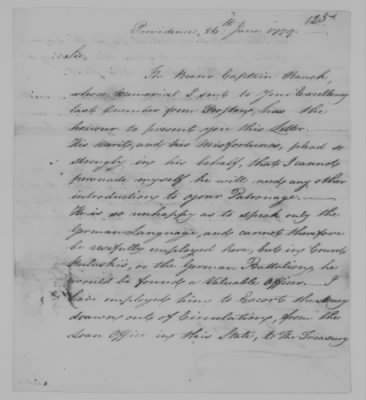 125
Providence, 26th June 1779.
Sir,
The Bearer Captain
whose Memorial I sent to Your Excellency
last from Boston, has the
honour to present you this Letter.
His merit, and his misfortunes, plead so
strongly in his behalf, that I cannot
persuade myself he will need any other
introduction to your Patronage.
He is so unhappy as to speak only the
German Language, and cannot therefore
be usefully employed here, but in Count
Pulaskis, or the German Battalion, he
would be found a Valuable Officer. I
have employed him to Escort the Money
drawn out of Circulation, from the
Loan Office in this State, to the Treasury